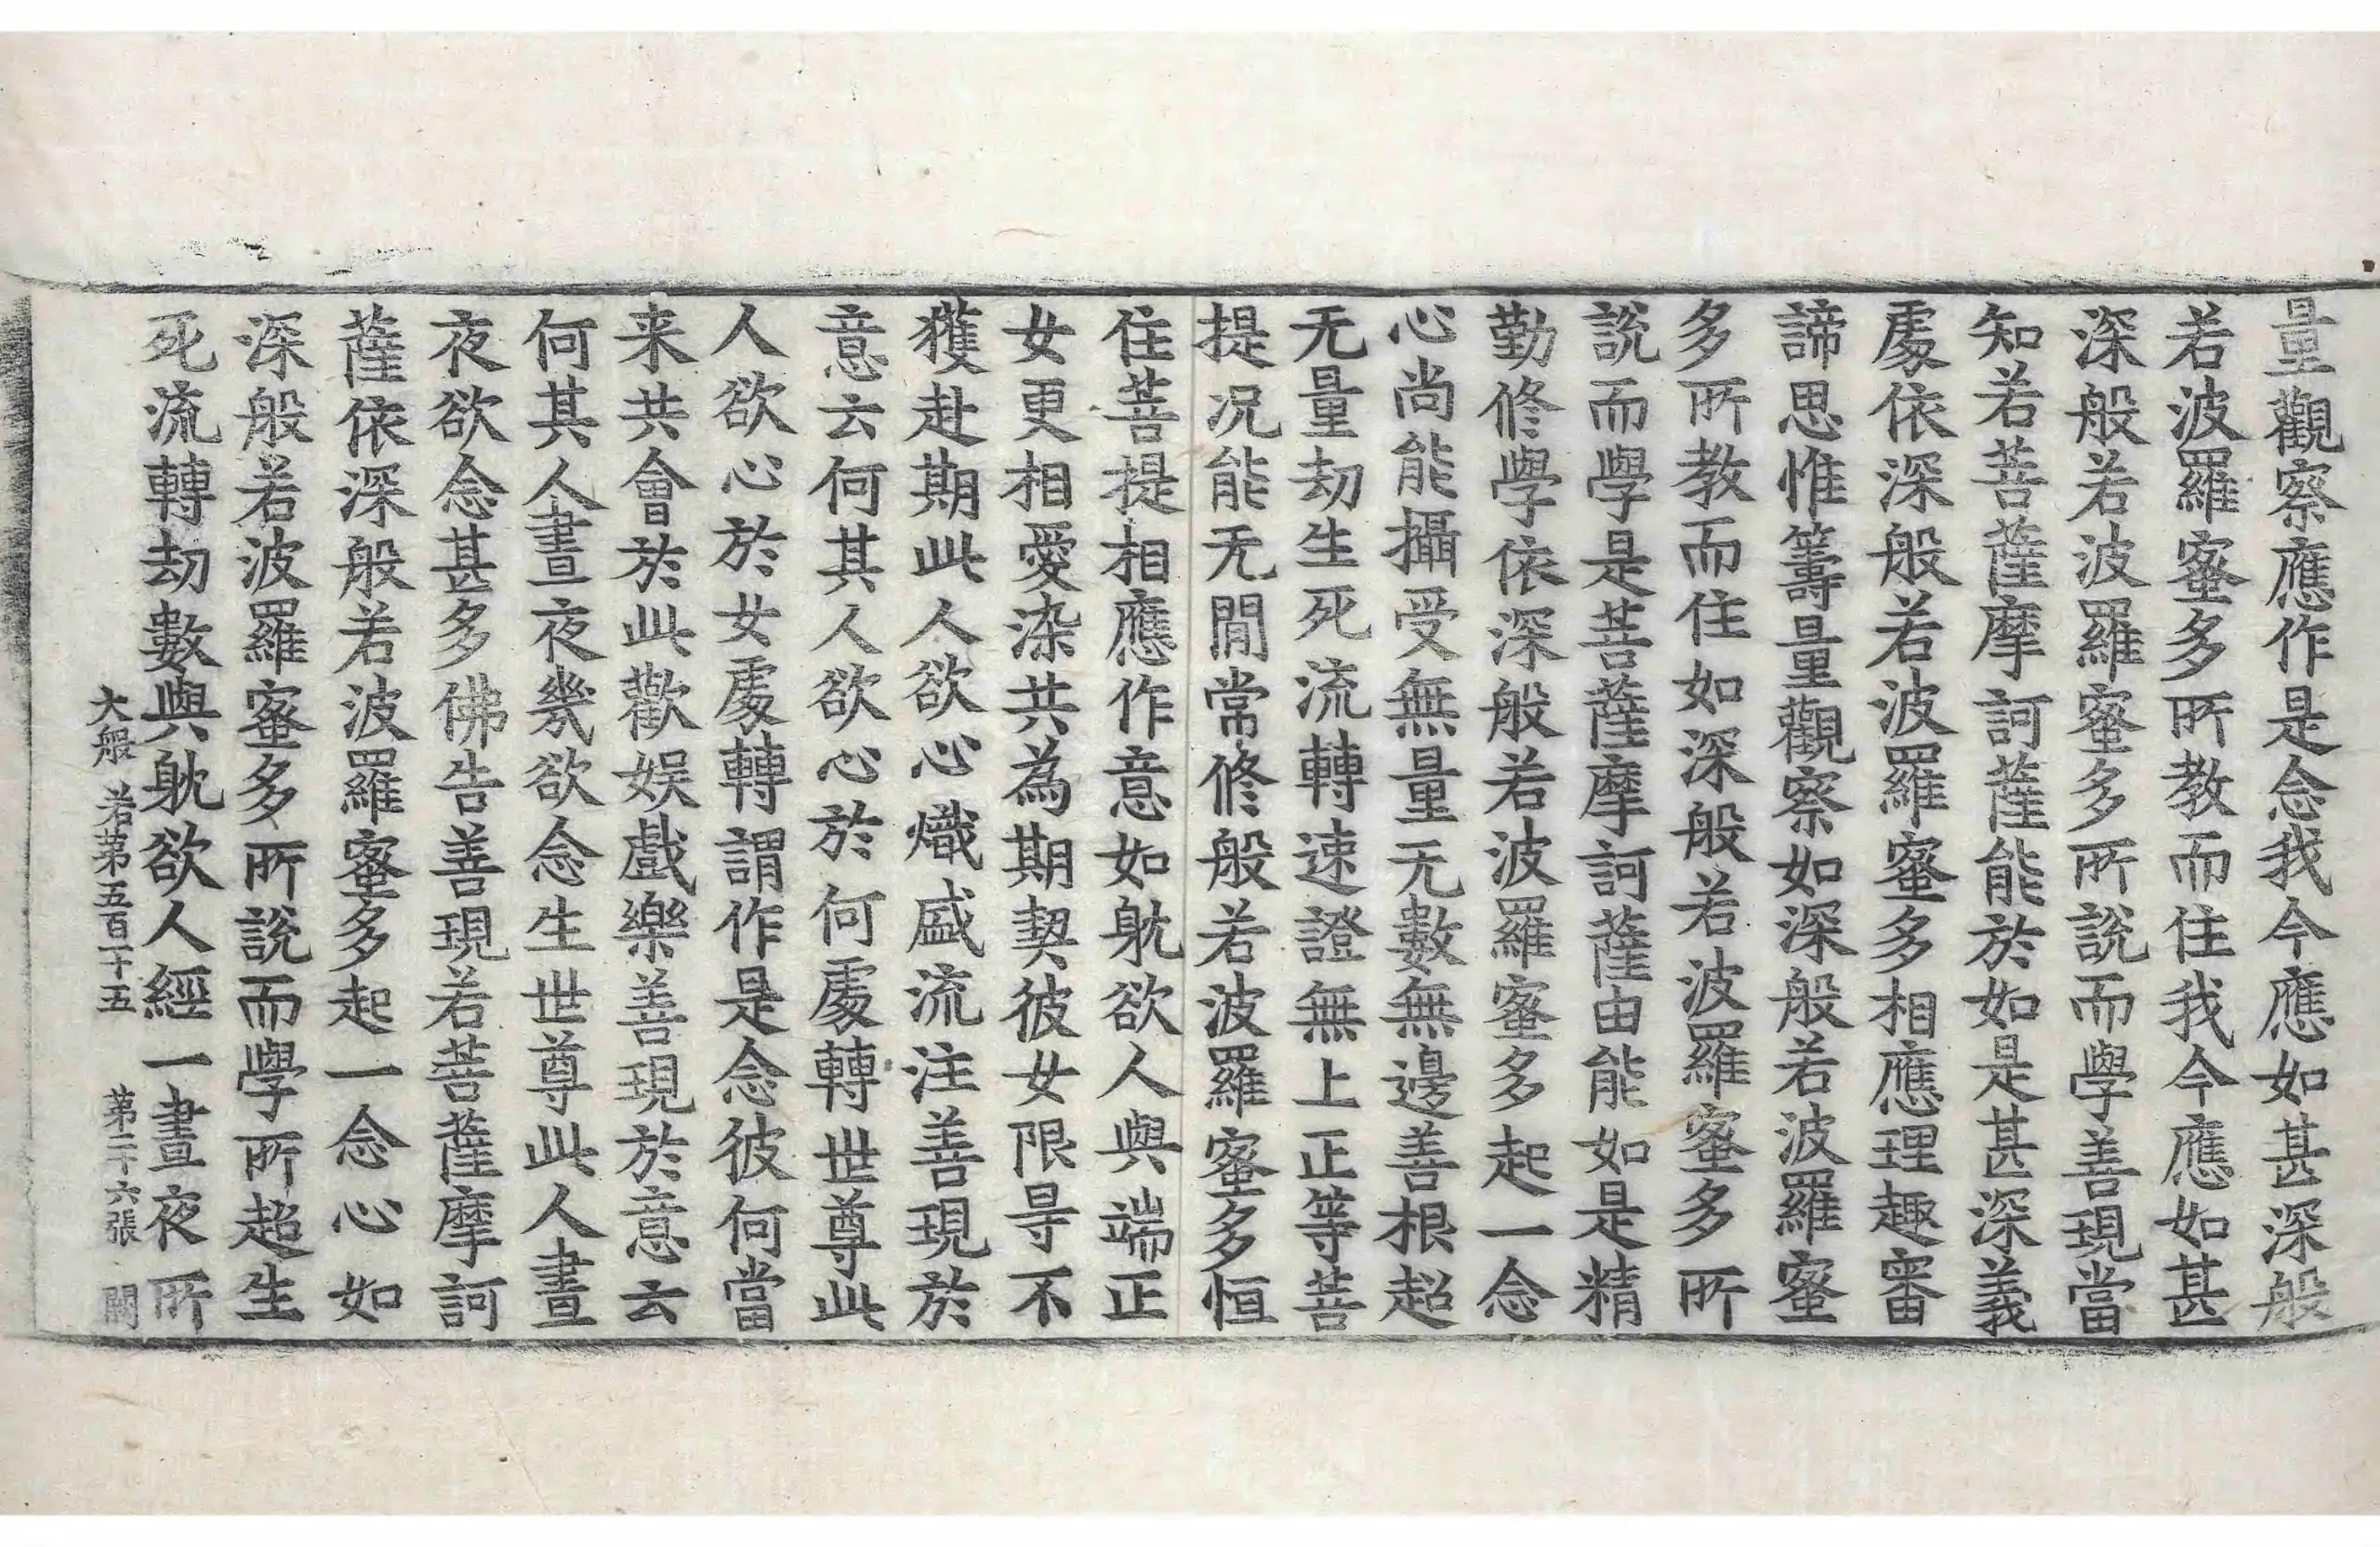 量觀察應作是念我今應如甚深般
若波羅蜜多所教而住我今應如甚
深般若波羅蜜多所說而學善現當
知若菩薩摩訶薩能於如是甚深義
處依深般若波羅蜜多相應理趣審
諦思惟籌量觀察如深般若波羅蜜
多所教而住如深般若波羅蜜多所
說而學是菩薩摩訶薩由能如是精
勤修學依深般若波羅蜜多起一念
心尚能攝受無量无數無邊善根超
无量劫生死流轉速證無上正等菩
提况能无閒常修般若波羅蜜多恒
住菩提相應作意如躭欲人與端正
女更相愛染共為期契彼女限㝵不
獲赴期此人欲心熾盛流注善現於
意云何其人欲心於何處轉世尊此
人欲心於女處轉謂作是念彼何當
来共會於此歡娛戲樂善現於意云
何其人晝夜幾欲念生世尊此人晝
夜欲念甚多佛告善現若菩薩摩訶
薩依深般若波羅蜜多起一念心如
深般若波羅蜜多所說而學所超生
死流轉劫數與躭欲人經一晝夜所
大般若第五百二十五 第二十六張 闕